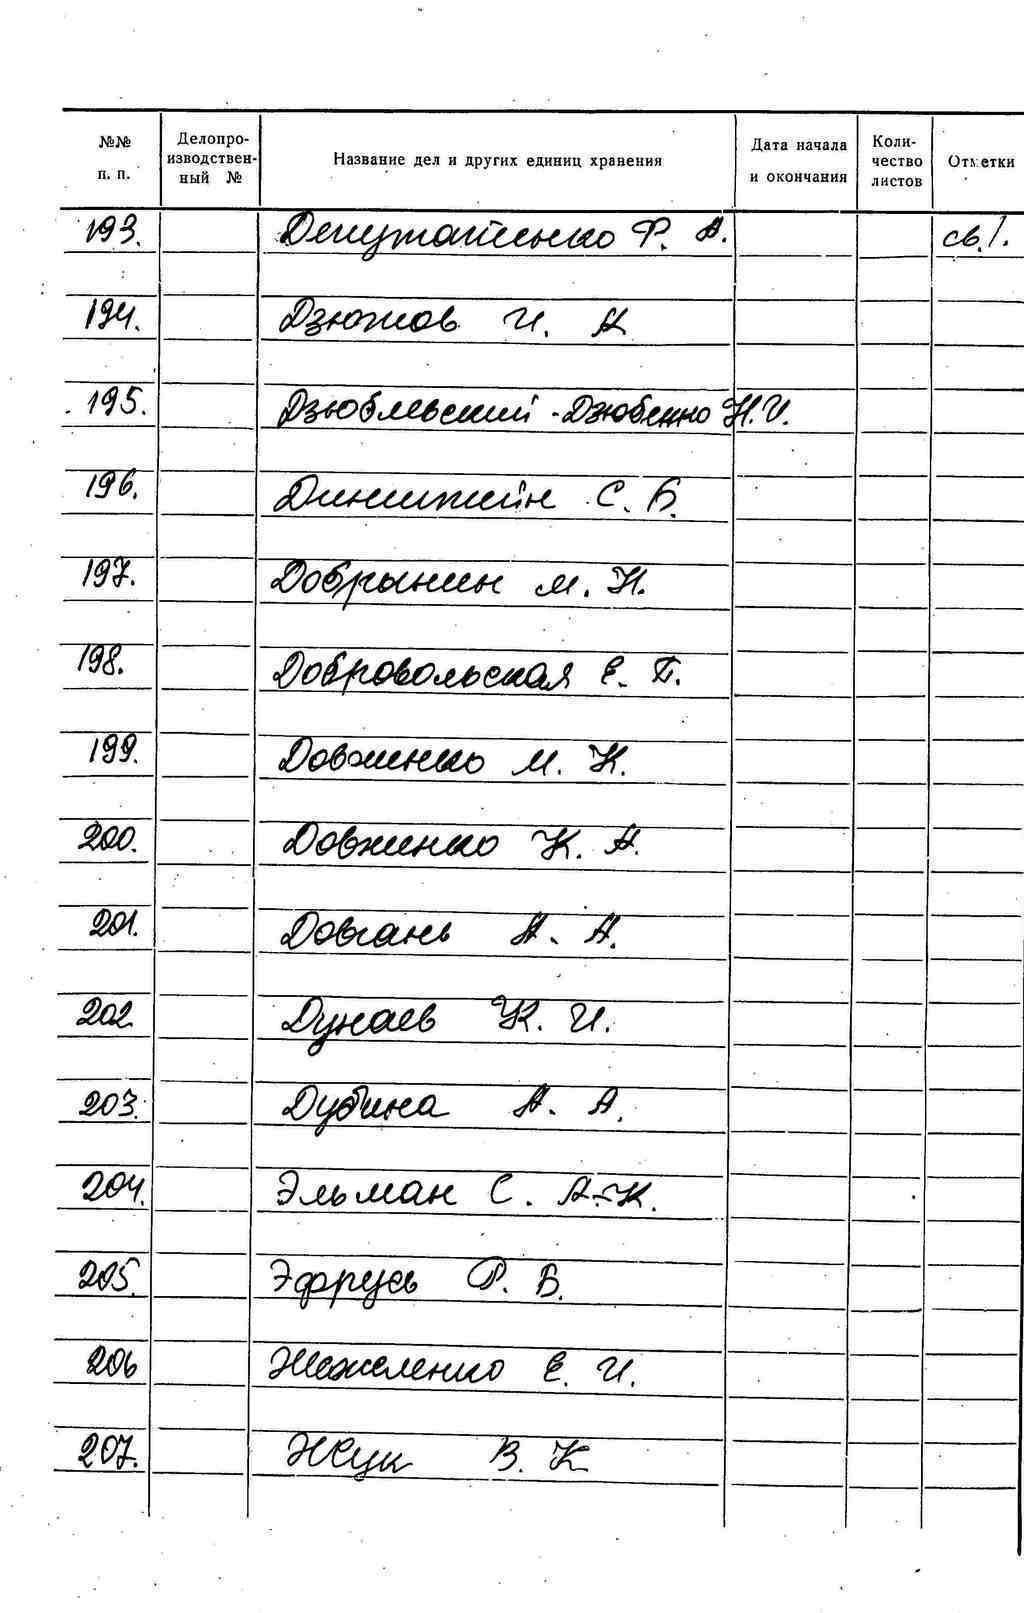 №№ п. п. Делопро-изводствен-ный № Название дел и других единиц хранения Дата начала и окончания Коли-чество листов Отметки
193. Депутатенько Ф. А. св. 1.
194. Дзюжов И. А
195. Дзюблевский - Дзюбенко Н. И.
196. С. Б.
197. Добрынин М. Н.
198. Добровольская Е. Б.
199. Довженко М. К.
200. Довженко К. А.
201. Довгань А. А.
202 Дунаев К. И.
203. Дубина А. А.
204. Эльман С. А.-К.
205. Эфрусь Р. В.
206 Жежеленко Е. И.
207. Жук В. К